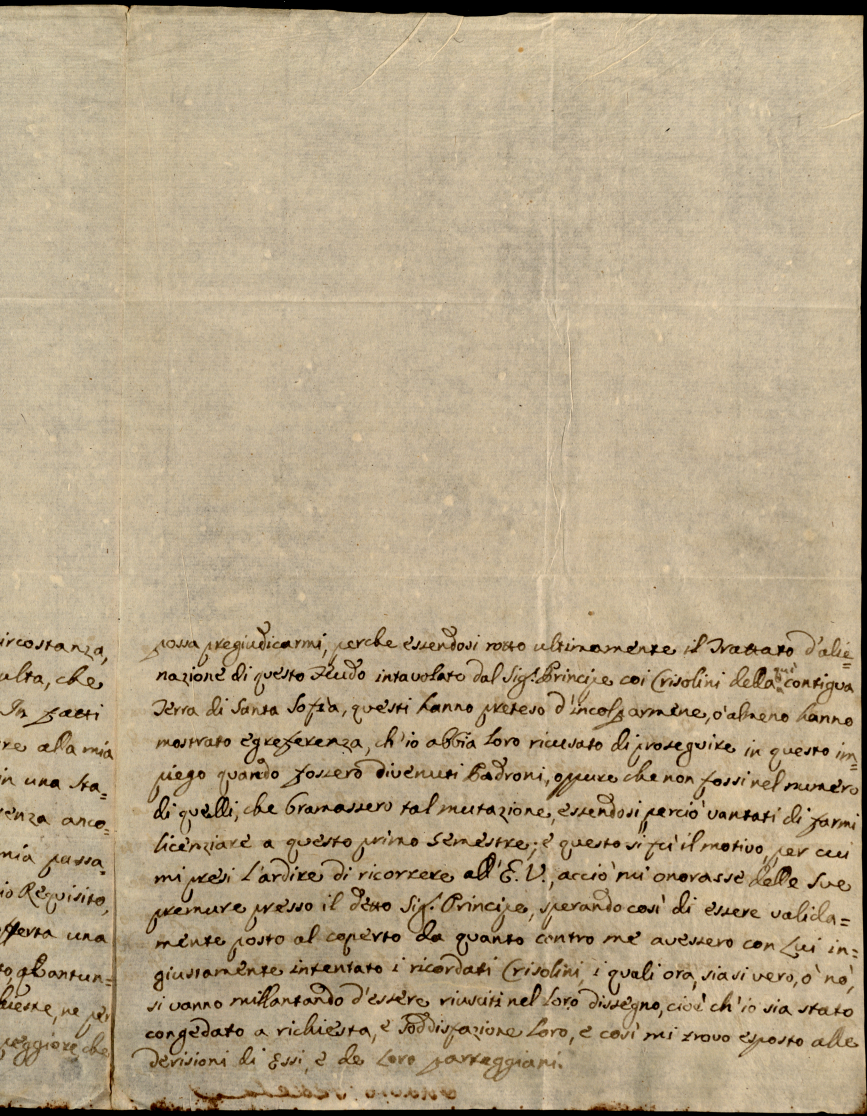 ircostanza,
ulta, che
In fatti
re alla mia
in una sta=
enza anco=
mia passa=
io Requisito,
fferta una
to quantun=
hieste, ne per
peggiore, che
possa pregiudicarmi, perche essendosi rotto ultimamente il Trattato d'alie=
nazione di questo Feudo intavolato dal Sig.r Principe coi Crisolini della qui contigua
Terra di Santa Sofia, questi hanno preteso d'incolparmene, o' almeno hanno
mostrato egreferenza, ch'io abbia loro ricusato di proseguire in questo im=
piego quando fossero divenuti Padroni, oppure che non fossi nel numero
di quelli, che bramassero tal mutazione, essendosi perciò vantati di farmi
licenziare a questo primo semestre; e questo si fù il motivo, per cui
mi presi l'ardire di ricorrere all'E. V., acciò mi onorasse delle Sue
premure presso il detto Sig.r Principe, sperando così di essere valida=
mente posto al coperto da quanto contro me avessero con Lui in=
giustamente intentato i ricordati Crisolini, i quali ora, siasi vero, ò nò,
si vanno millantando d'essere riusciti nel loro dissegno, cioè ch'io sia stato
congedato a richiesta, e soddisfazione loro, e così mi trovo esposto alle
derisioni di Essi, e de loro parteggiani.